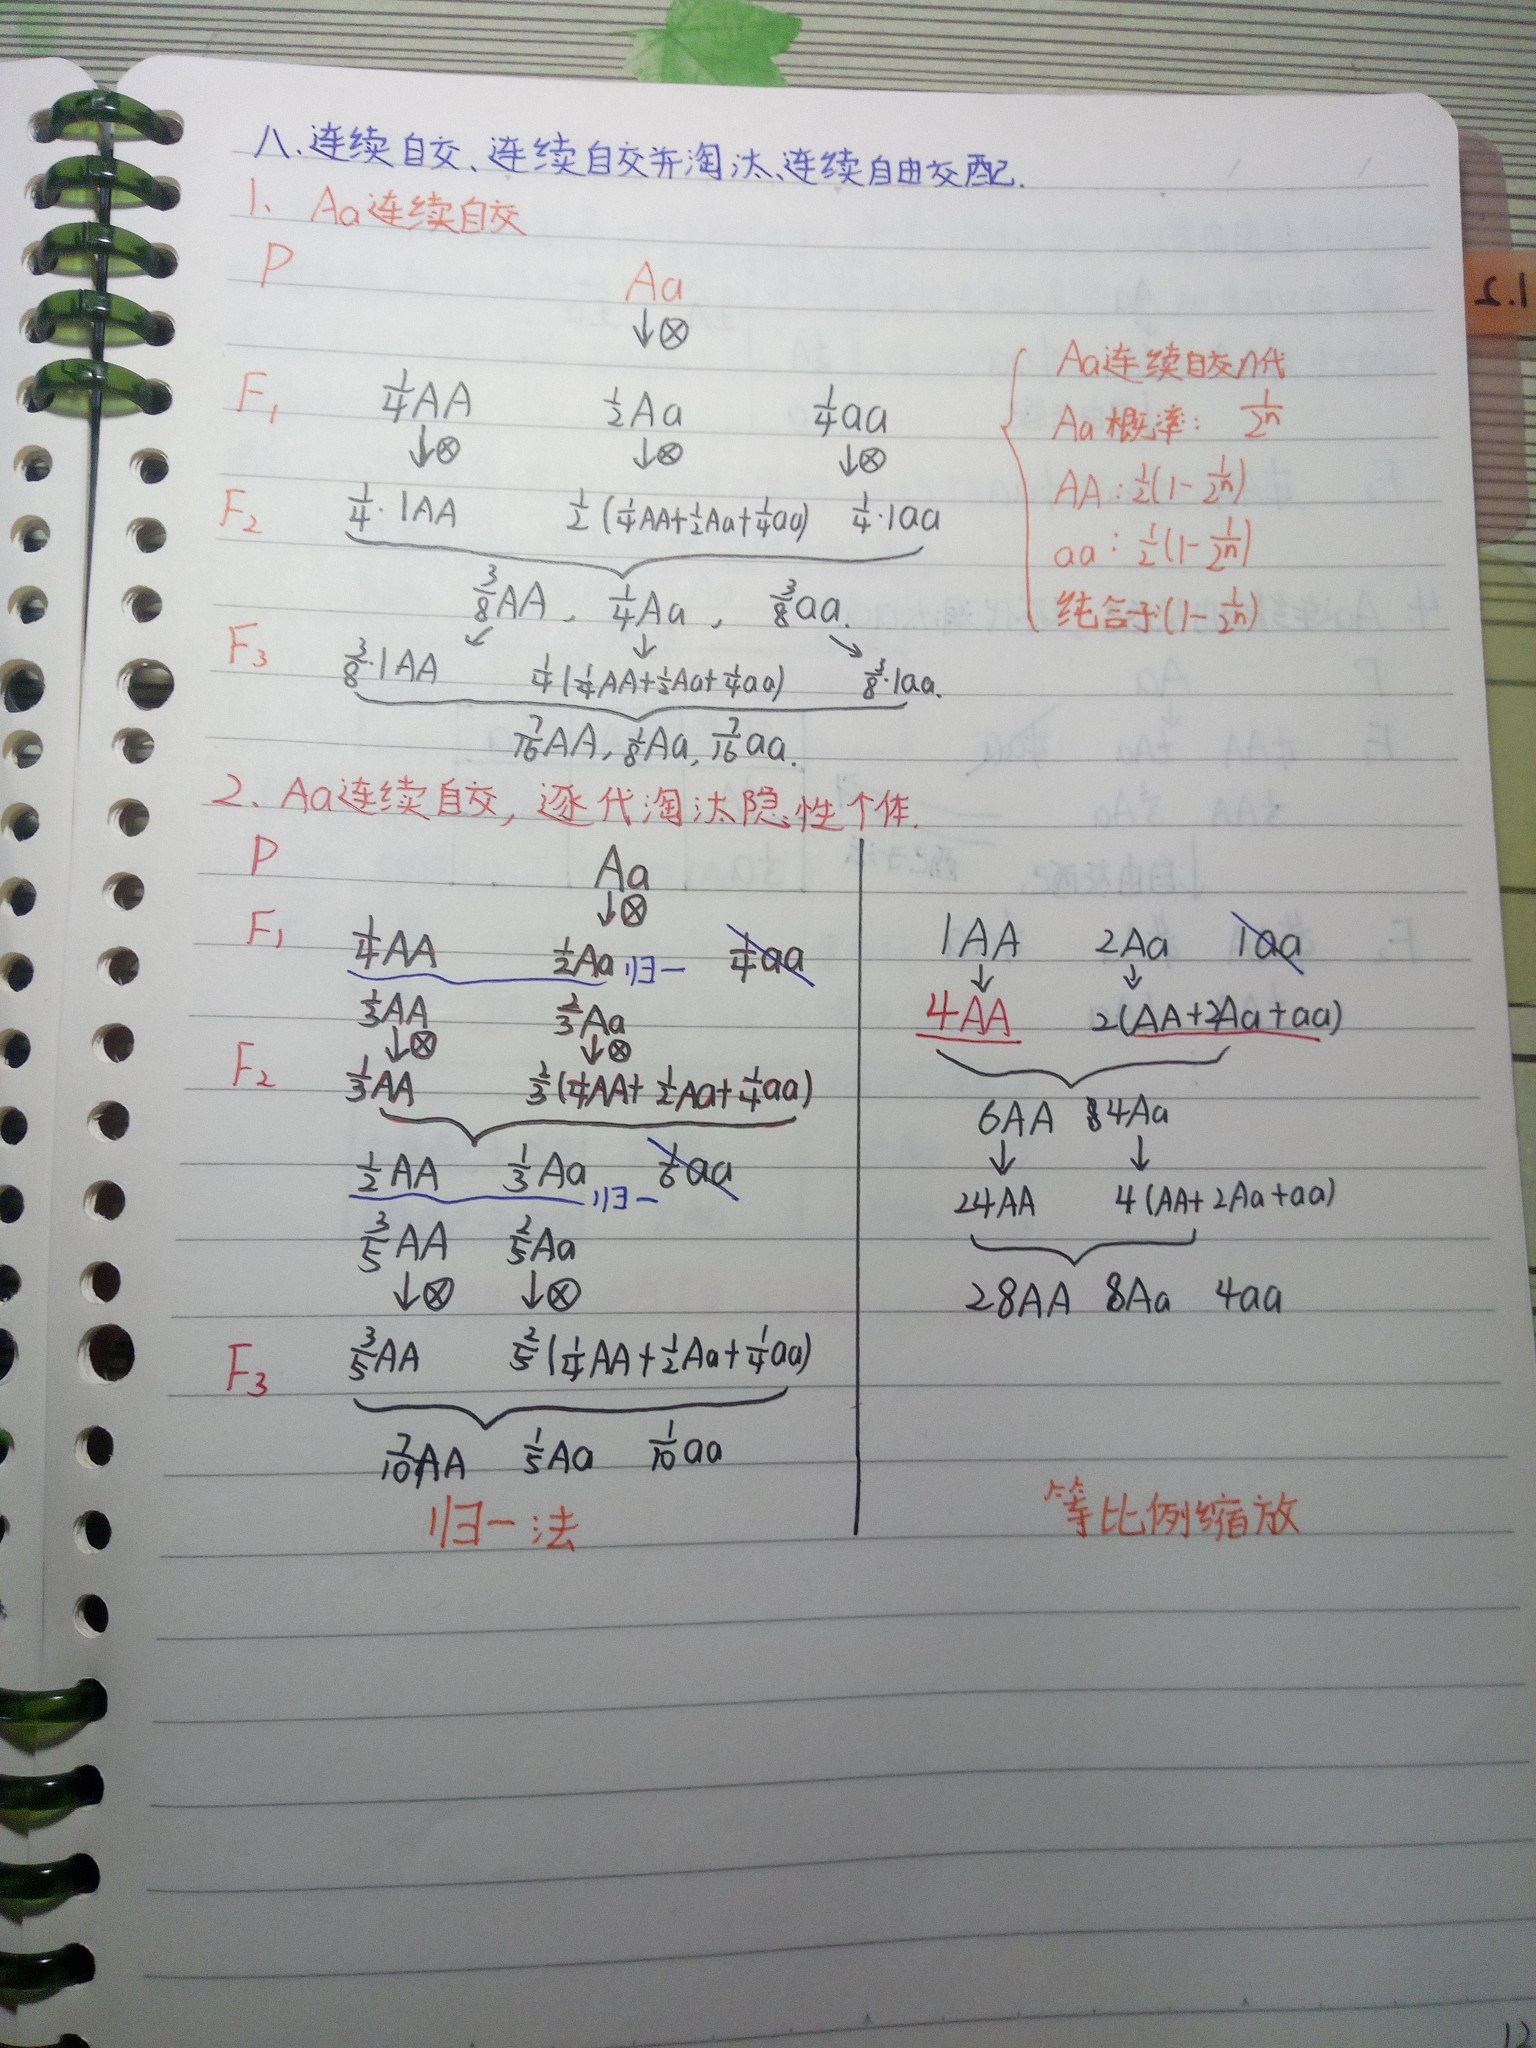 八、连续自交、连续自交并淘汰、连续自由交配.
1、Aa连续自交
P Aa
↓⊗
F₁ 1/4AA 1/2Aa 1/4aa
↓⊗ ↓⊗ ↓⊗
F₂ 1/4·1AA 1/2(1/4AA+1/2Aa+1/4aa) 1/4·1aa
3/8AA, 1/4Aa, 3/8aa.
F₃ 3/8·1AA 1/4(1/4AA+1/2Aa+1/4aa) 3/8·1aa.
7/16AA, 1/8Aa, 7/16aa.
Aa连续自交n代
Aa概率: 1/2ⁿ
AA:1/2(1-1/2ⁿ)
aa:1/2(1-1/2ⁿ)
纯合子(1-1/2ⁿ)
2、Aa连续自交,逐代淘汰隐性个体.
P Aa
↓⊗
F₁ 1/4AA 1/2Aa 归一 1/4aa
1/3AA 2/3Aa
↓⊗ ↓⊗
F₂ 1/3AA 2/3(1/4AA+1/2Aa+1/4aa)
1/2AA 1/3Aa 归一 1/6aa
3/5AA 2/5Aa
↓⊗ ↓⊗
F₃ 3/5AA 2/5(1/4AA+1/2Aa+1/4aa)
7/10AA 1/5Aa 1/10aa
归一法
1AA 2Aa 1aa
↓ ↓
4AA 2(AA+2Aa+aa)
6AA 4Aa
↓ ↓
24AA 4(AA+2Aa+aa)
28AA 8Aa 4aa
等比例缩放
1.2
12